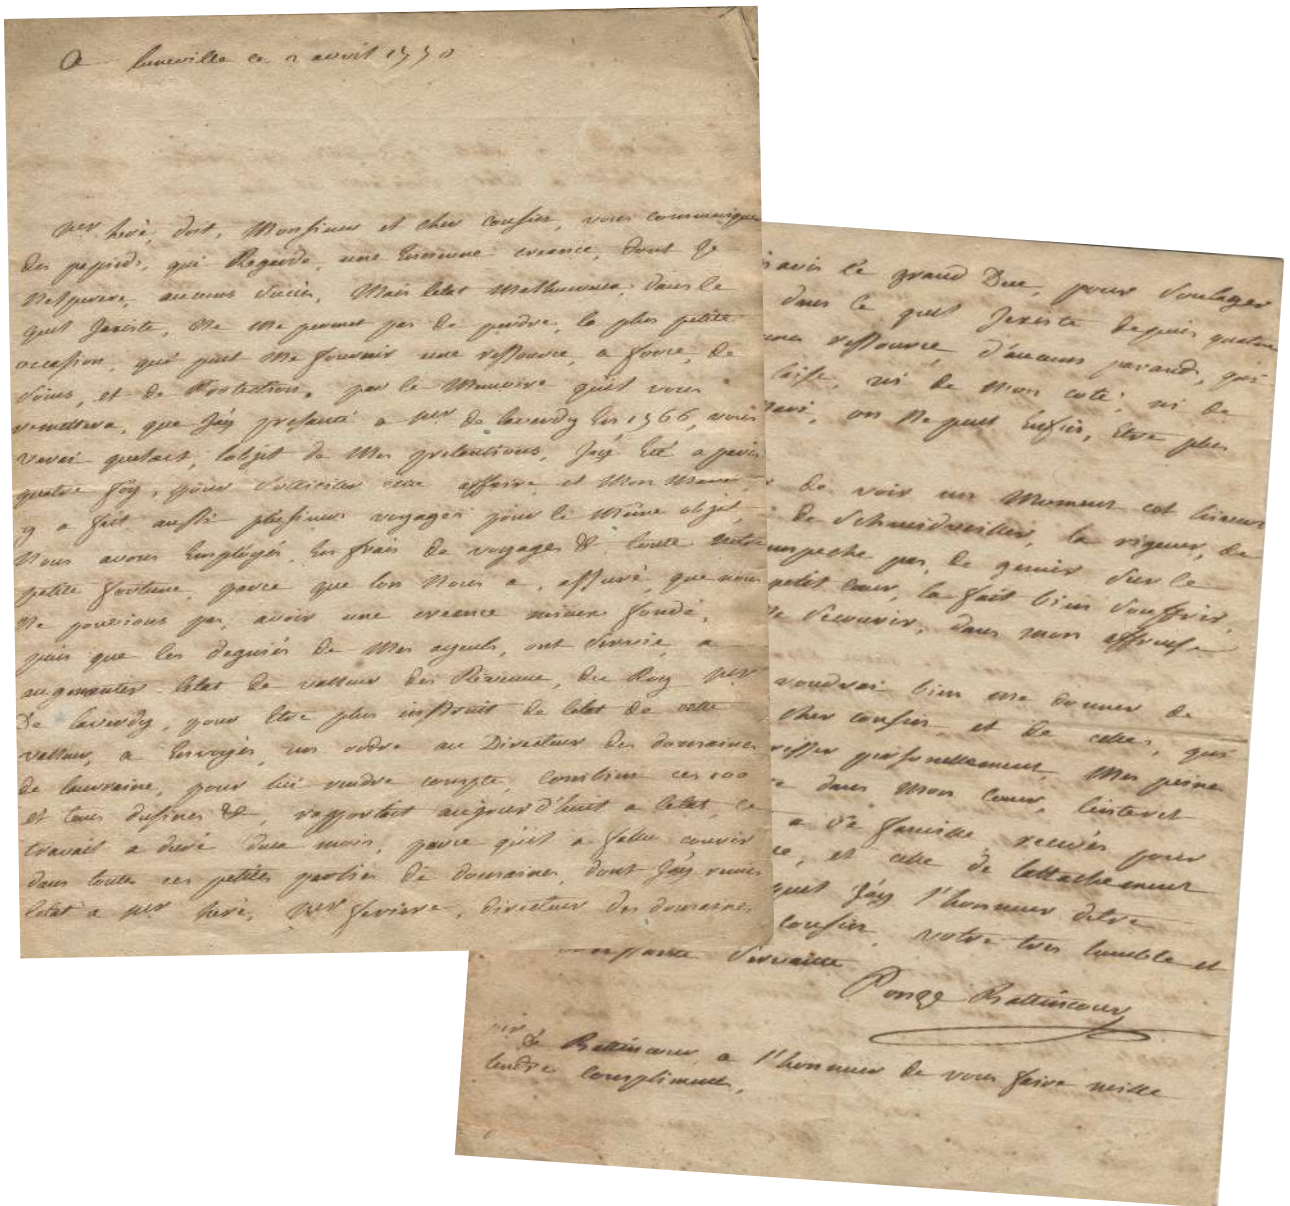 A luneville ce 2 avril 1770
Mr. heré, doit, Monsieur et cher cousin, vous communiquer
des papiers, qui Regarde, une Encienne creance, dont Je
Nespere, aucuns succès, Mais letat Malheureux, dans le
quel Jexiste, Ne Me permet pas de perdre, la plus petite
occasion, qui puit Me fournir une ressource, a force, de
soins, et de Protection, par le Memoire quil vous
remettera, que Jay presenté a Mr. de laverdy En 1766, vous
verai quelest, lobjet de Mes pretentions, Jay Eté a paris
quatre fois, pour solliciter cette affaire, et Mon Marie
y a fait aussi plusieurs voyages pour le Même objet,
Nous avons Employés, En frais de voyages & toute notre
petite fortune, parce que lon Nous a, assuré, que nous
Ne pouvions pas, avoir une creance mieux fondé,
puis que les de Mes ayeuls, ont servie, a
augmenter letat de valleur des Revenue, du Roy Mr
De laverdy, pour Etre plus instruit de letat de cette
valleur, a Envoyés un ordre au Directeur des domaines
de lauraine, pour lui rendre compte, combien ces
et tous & rapportoit aujourd'huit a letat, ce
travail a duré deux mois, parce quil a fallu courir
dans toutes ces petites parties de domaines, dont Jay remis
letat a Mr heré, Mr ferriere, directeur des domaines
avis le grand Duc, pour soulager
dans le quel Jexiste depuis quatre
ressource, d'aucuns parands, qui
ni de Mon coté, ni de
on Ne peut Enfin, Etre plus
de voir un Moment cet heureux
de Schmidveiller, la rigueur, de
empeche pas, de gemir sur le
petit cœur, la fait bien souffrir,
secourir, dans mon affreuse
voudrai bien me donner de
cher cousin, et de celles, qui
personellement, Mes peine
dans Mon cœur, lintaret
a Ve famille, recevés pour
et celle de lattachement
quel Jay l'honneur detre
cousin, votre tres humble et
servante
Ponze Battincour
Mr de Battincour, a l'honneur de vous faire mille
tendre compliment,